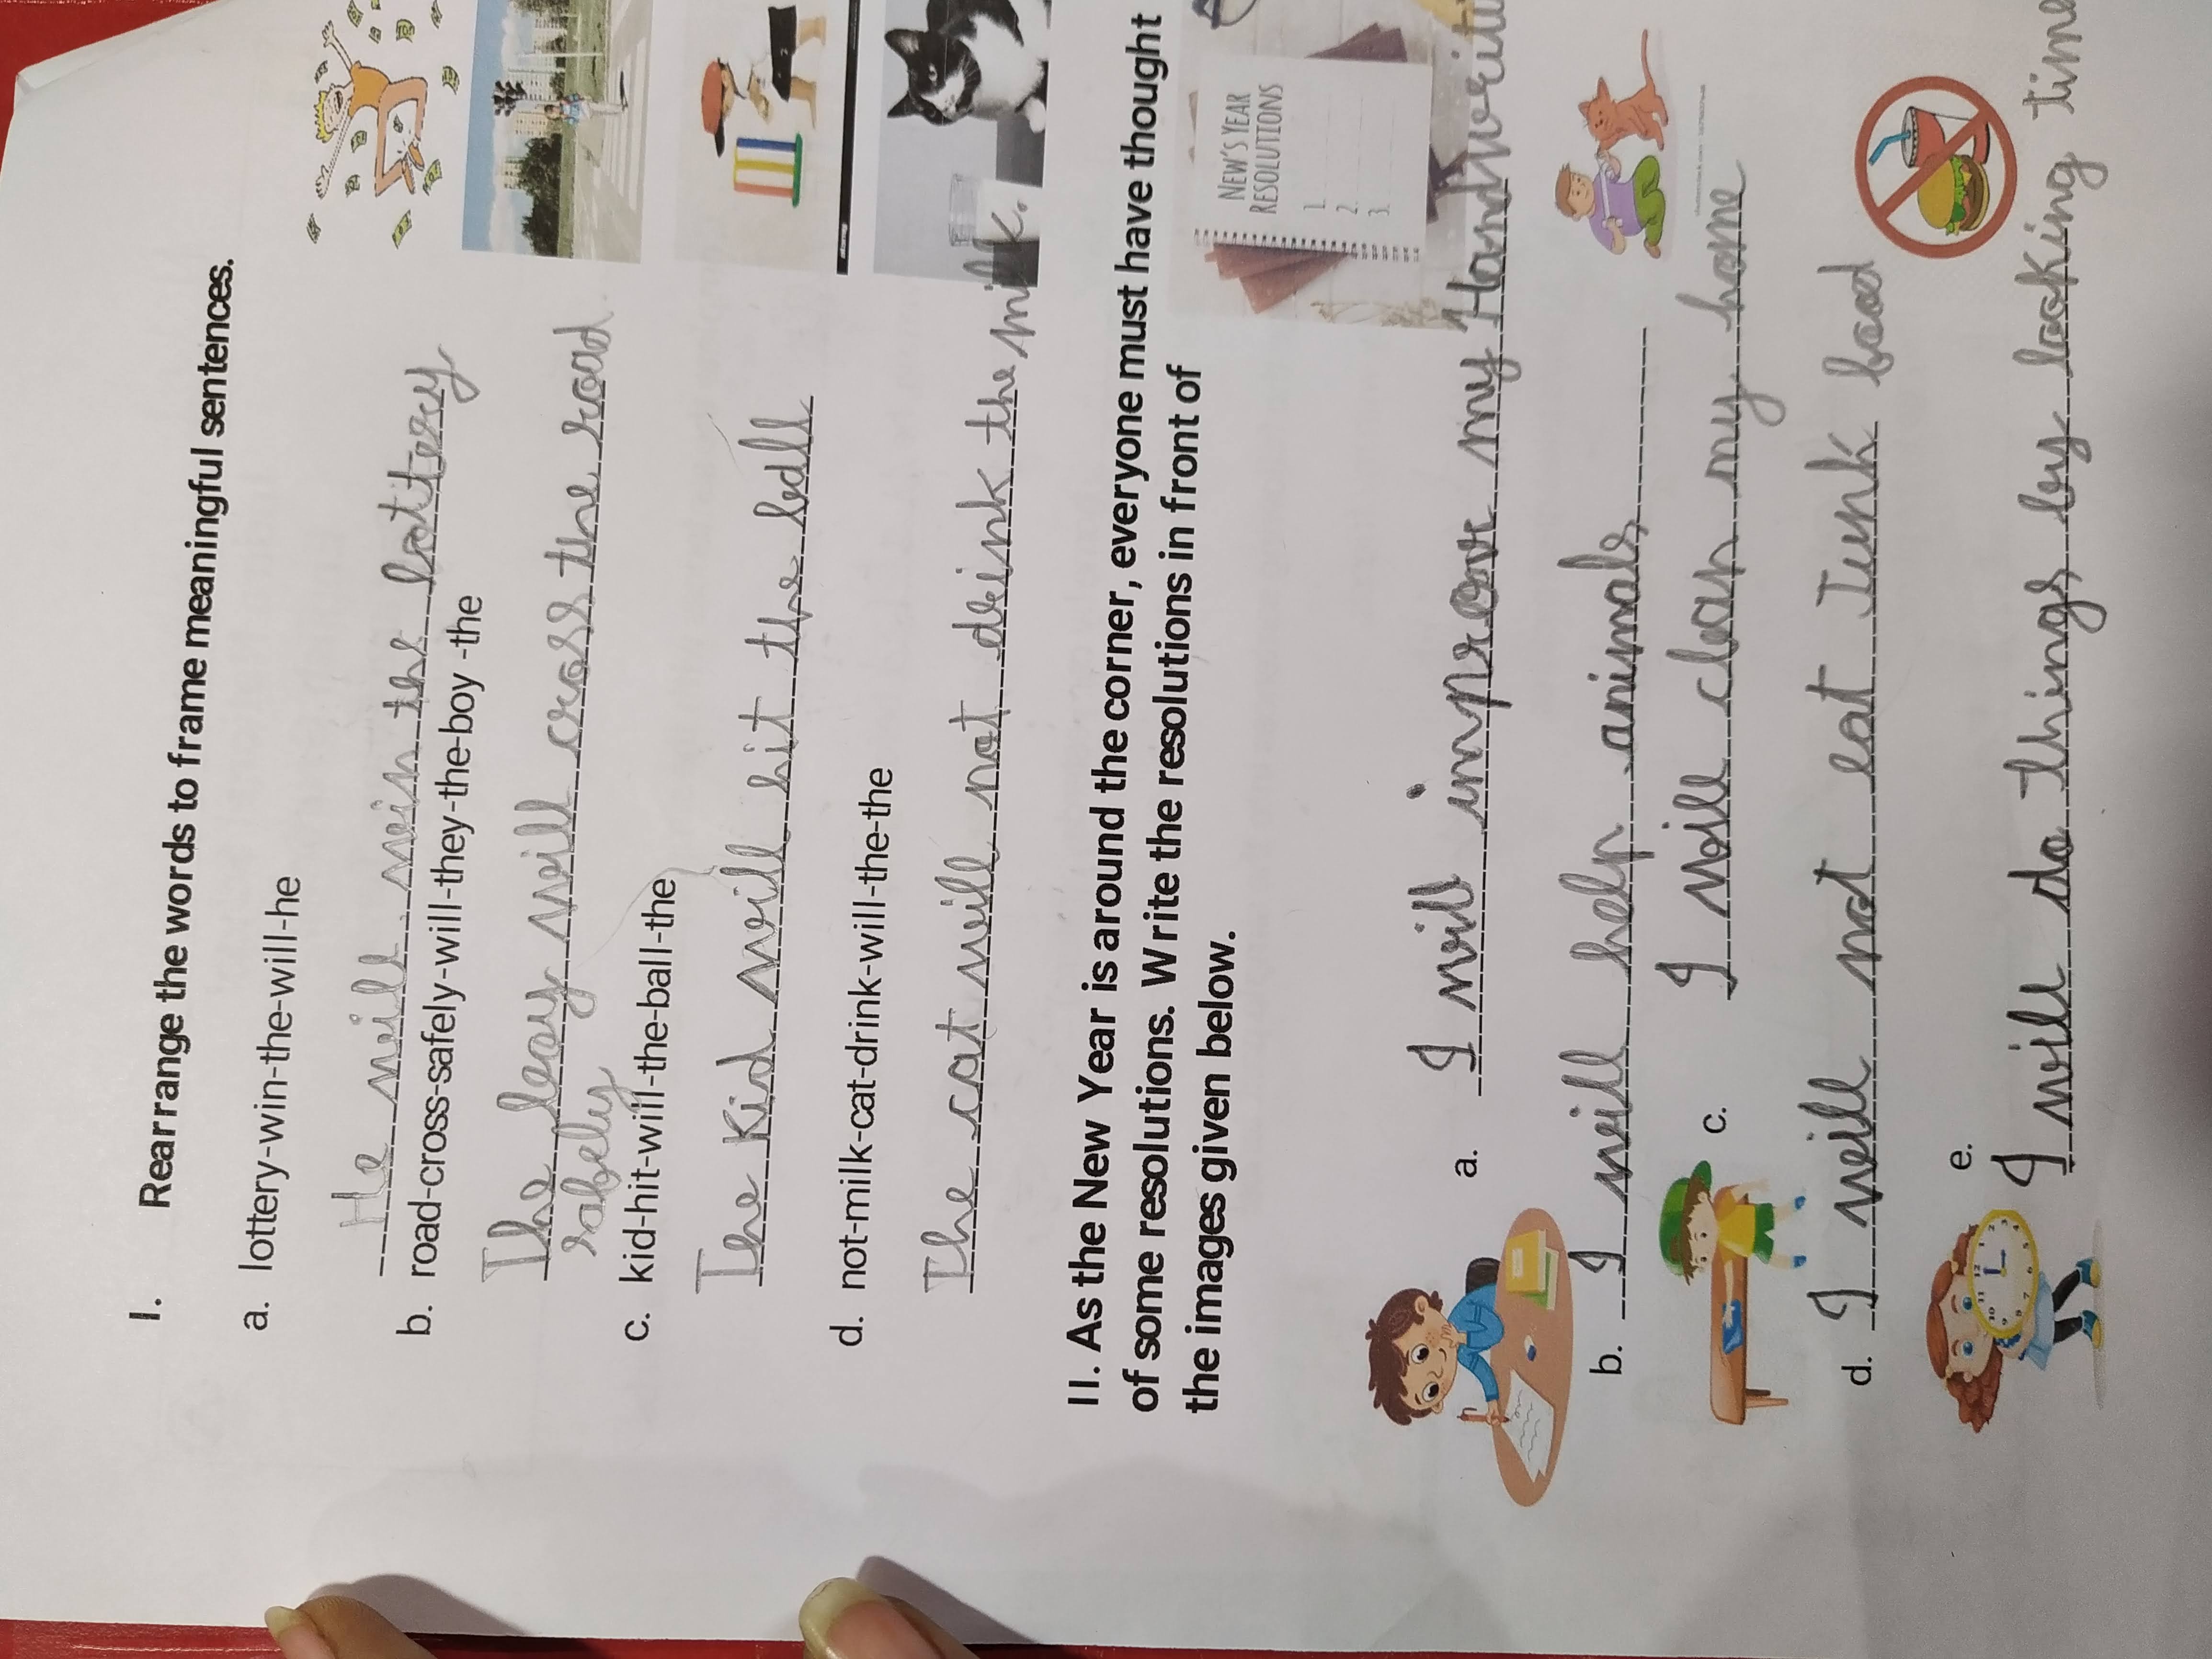 I. Rearrange the words to frame meaningful sentences.
a. lottery-win-the-will-he
He will win the lottery
b. road-cross-safely-will-they-the-boy -the
The boy will cross the road
safely
c. kid-hit-will-the-ball-the
The Kid will hit the ball
d. not-milk-cat-drink-will-the-the
The cat will not drink the milk.
II. As the New Year is around the corner, everyone must have thought
of some resolutions. Write the resolutions in front of
the images given below.
NEW'S YEAR
RESOLUTIONS
1.
2.
3.
a. I will improve my Handwriti
b. I will help animals
c. I will clean my home
d. I will not eat Junk food
e.
I will do things by looking time